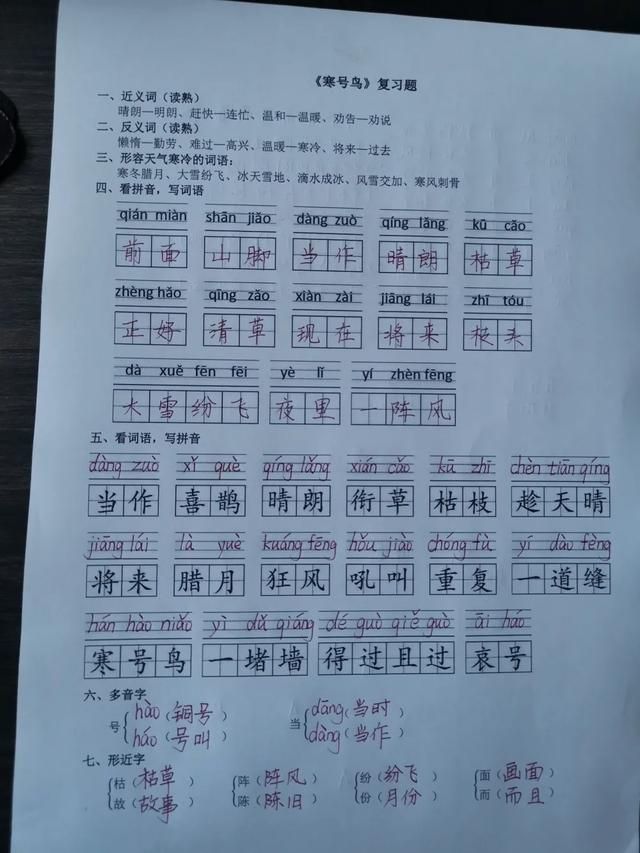 《寒号鸟》复习题
一、近义词（读熟）
晴朗—明朗、赶快—连忙、温和—温暖、劝告—劝说
二、反义词（读熟）
懒惰—勤劳、难过—高兴、温暖—寒冷、将来—过去
三、形容天气寒冷的词语：
寒冬腊月、大雪纷飞、冰天雪地、滴水成冰、风雪交加、寒风刺骨
四、看拼音，写词语
qián miàn shān jiǎo dàng zuò qíng lǎng kū cǎo
前面 山脚 当作 晴朗 枯草
zhèng hǎo qīng zǎo xiàn zài jiāng lái zhī tóu
正好 清草 现在 将来 枝头
dà xuě fēn fēi yè lǐ yí zhèn fēng
大雪纷飞 夜里 一阵风
五、看词语，写拼音
dàng zuò xǐ què qíng lǎng xián cǎo kū zhī chèn tiān qíng
当作 喜鹊 晴朗 衔草 枯枝 趁天晴
jiāng lái là yuè kuáng fēng hǒu jiào chóng fù yí dào fèng
将来 腊月 狂风 吼叫 重复 一道缝
hán háo niǎo yì dǔ qiáng dé guò qiě guò āi háo
寒号鸟 一堵墙 得过且过 哀号
六、多音字
号 hào（铜号） 当 dāng（当时）
háo（号叫） dàng（当作）
七、形近字
枯（枯草） 阵（阵风） 纷（纷飞） 面（画面）
故（故事） 陈（陈旧） 份（月份） 而（而且）